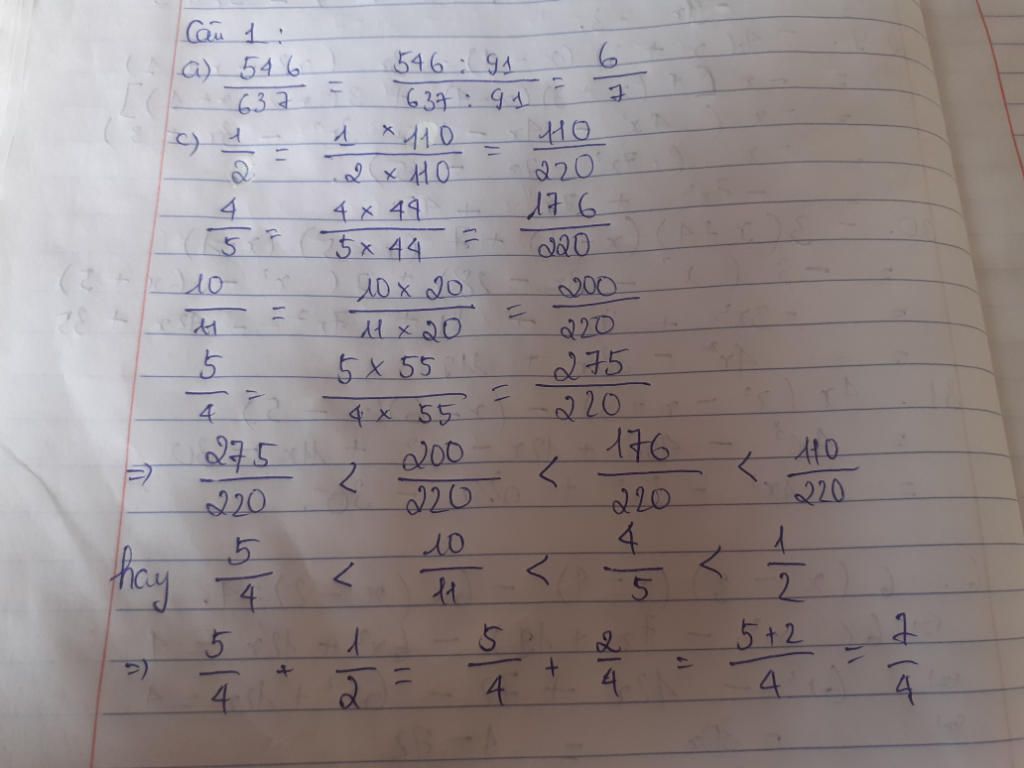 Câu 1:
a) 546/637 = 546 : 91/637 : 91 = 6/7
c) 1/2 = 1 × 110/2 × 110 = 110/220
4/5 = 4 × 44/5 × 44 = 176/220
10/11 = 10 × 20/11 × 20 = 200/220
5/4 = 5 × 55/4 × 55 = 275/220
=> 275/220 < 200/220 < 176/220 < 110/220
hay 5/4 < 10/11 < 4/5 < 1/2
=> 5/4 + 1/2 = 5/4 + 2/4 = 5+2/4 = 7/4